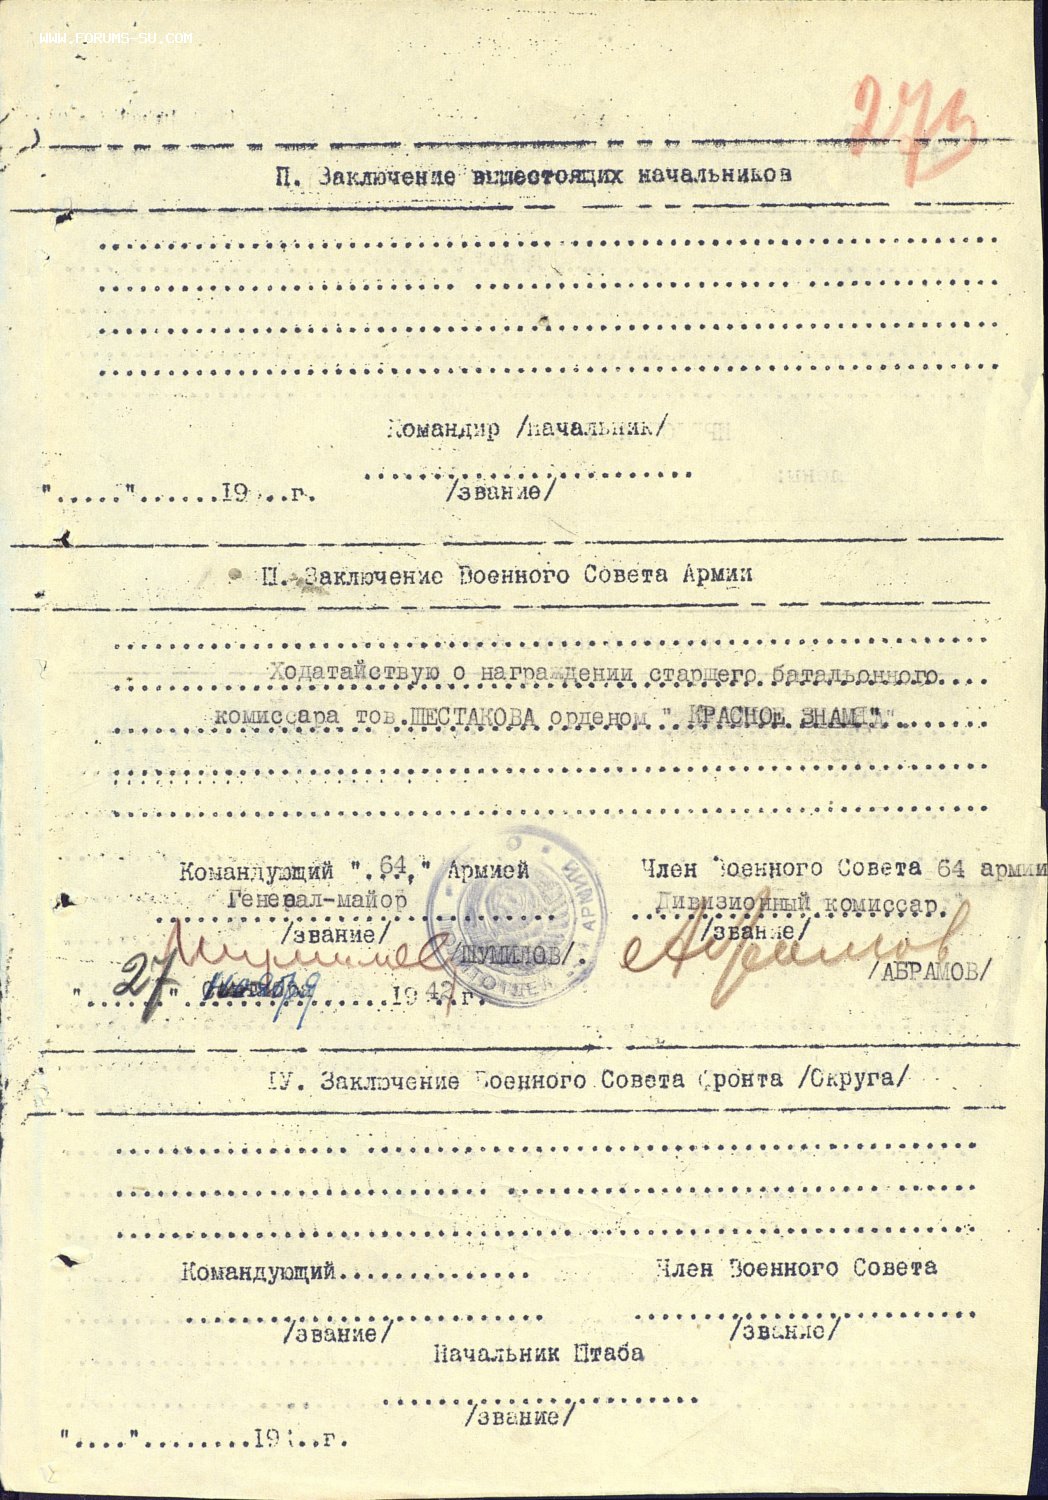 WWW.FORUMS-SU.COM
273
П. Заключение вышестоящих начальников
Командир /начальник/
"....."......19...г.
/звание/
П. Заключение Военного Совета Армии
Ходатайствую о награждении старшего батальонного
комиссара тов.ШЕСТАКОВА орденом " КРАСНОЕ ЗНАМЯ"
Командующий "64" Армией
Член Военного Совета 64 армии
Генерал-майор
Дивизионный комиссар
/звание/
/звание/
Шумилов /ШУМИЛОВ/.
Абрамов
/АБРАМОВ/
"27" ноября 1942 г.
1У. Заключение Военного Совета фронта /Округа/
Командующий..............
Член Военного Совета
/звание/
/звание/
Начальник Штаба
/звание/
"...."........19...г.